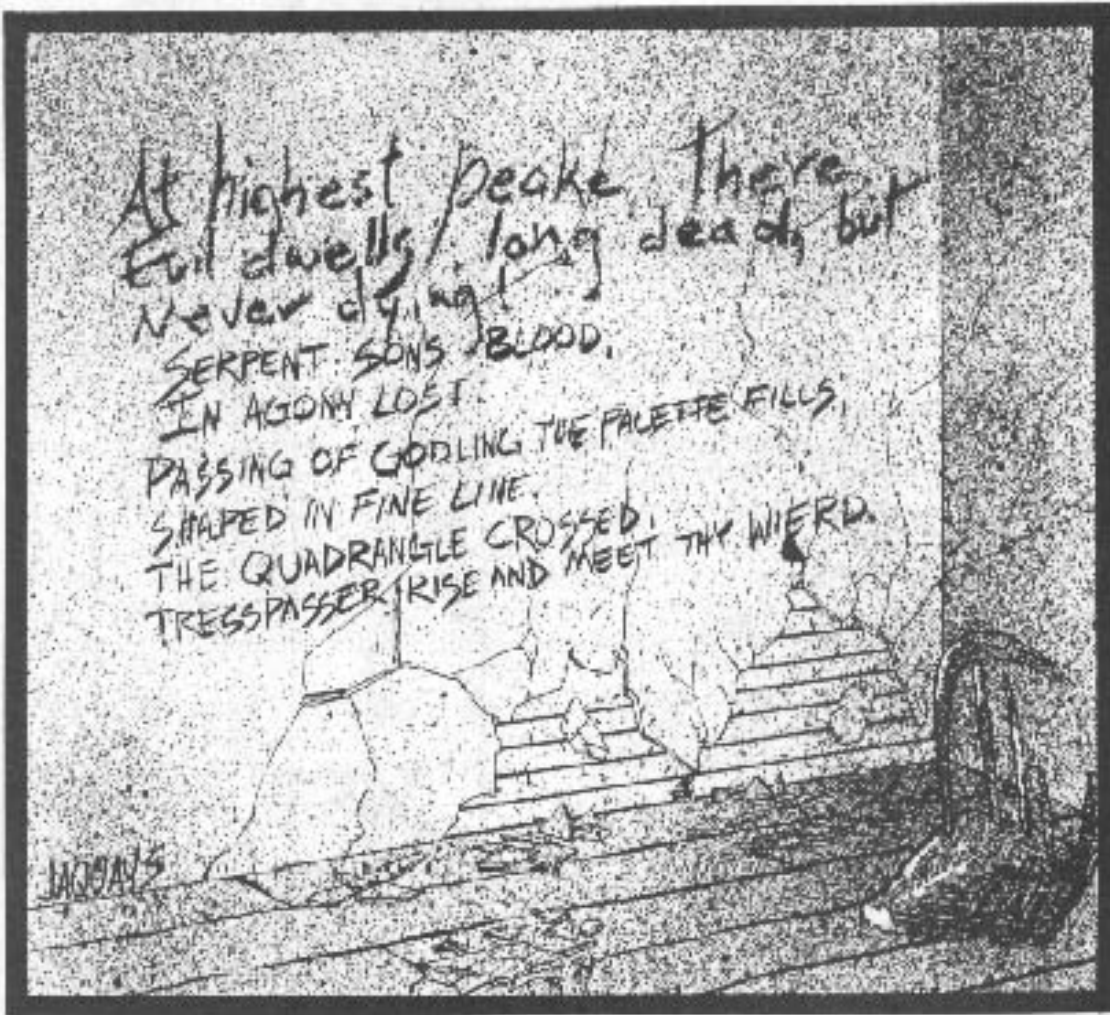 At highest peake, There
Evil dwells, long dead, but
Never dying!
SERPENT SONS BLOOD,
IN AGONY LOST.
PASSING OF GODLING THE PALETTE FILLS,
SHAPED IN FINE LINE.
THE QUADRANGLE CROSSED,
TRESSPASSER RISE AND MEET THY WIERD.
JAQUAYS